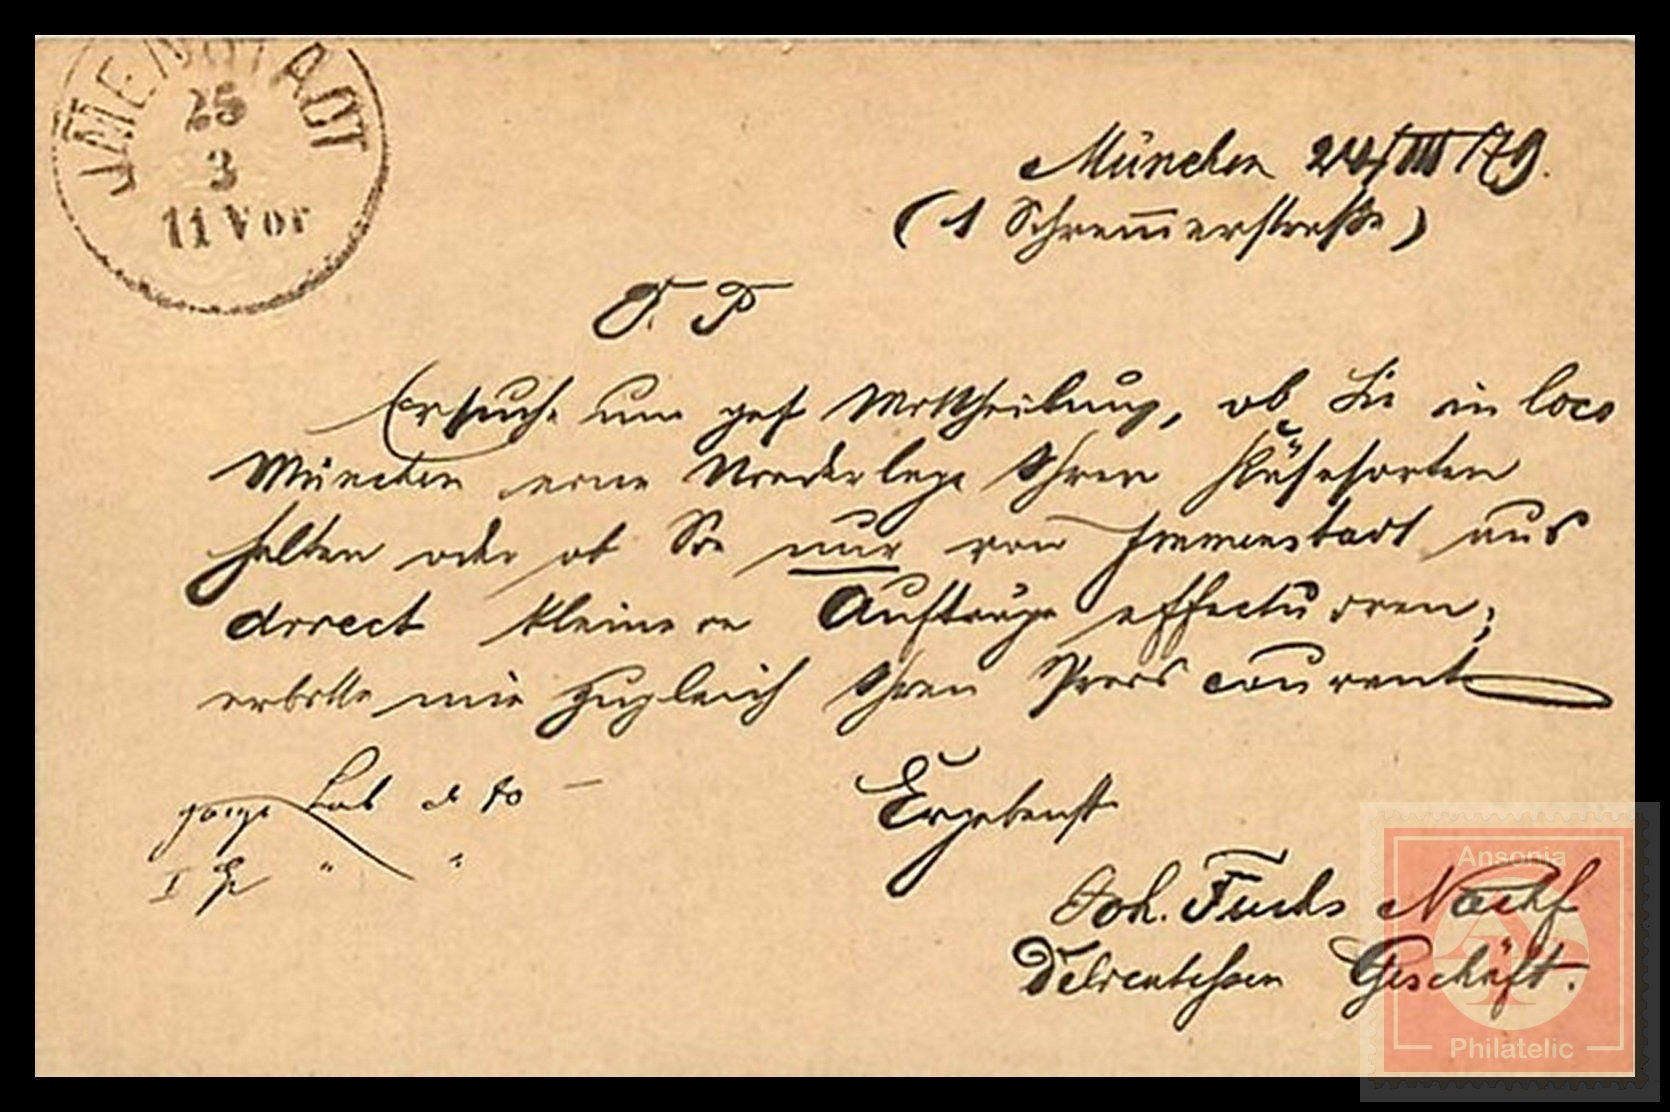 IMMENSTADT
25
3
11 Vor
München 24/III/79.
(1 Schrem̅erstraße)
T. P
Ersuche um gef Mittheilung, ob Sie in loco
München eine Niederlage Ihrer Käsesorten
halten oder ob Sie nur von Immenstadt aus
direct kleinere Aufträge effectuiren;
erbitte mir zugleich Ihren Preis courant
Ergebenst
Joh. Fuchs Nachf
Delicatessen Geschäft.
Ansonia
Philatelic